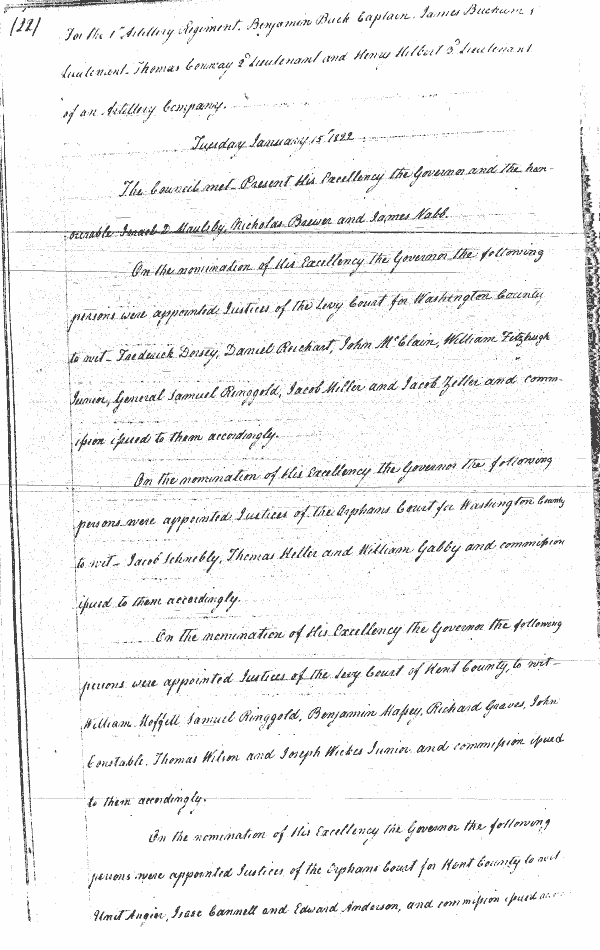 (22)
For the 1st Artillery Regiment. Benjamin Buck Captain. James
Lieutenant. Thomas Conway 2d Lieutenant and Henry Hilbert 3d Lieutenant
of an Artillery Company.
Tuesday January 15th 1822
The Council met_ Present His Excellency the Governor and the hon-
ourable Israel D Maulsby, Nicholas Brewer and James Nabb.
On the nomination of His Excellency the Governor the following
persons were appointed Justices of the Levy Court for Washington County
to wit_ Frederick Dorsey, Daniel Reichart, John McClain, William Fitzhugh
Junior, General Samuel Ringgold, Jacob Miller and Jacob Zeller and comm-
ission issued to them accordingly.
On the nomination of His Excellency the Governor the following
persons were appointed Justices of the Orphans Court for Washington County
to wit_ Jacob Schnebly, Thomas Keller and William Gabby and commission
issued to them accordingly.
On the nomination of His Excellency the Governor the following
persons were appointed Justices of the Levy Court of Kent County, to wit_
William Samuel Ringgold, Benjamin Massey, Richard Graves, John
Constable, Thomas Wilson and Joseph Wickes Junior and commission issued
to them accordingly.
On the nomination of His Excellency the Governor the following
persons were appointed Justices of the Orphans Court for Kent County to wit
Unit Angier, Isaac Cannell and Edward Anderson, and commission issued